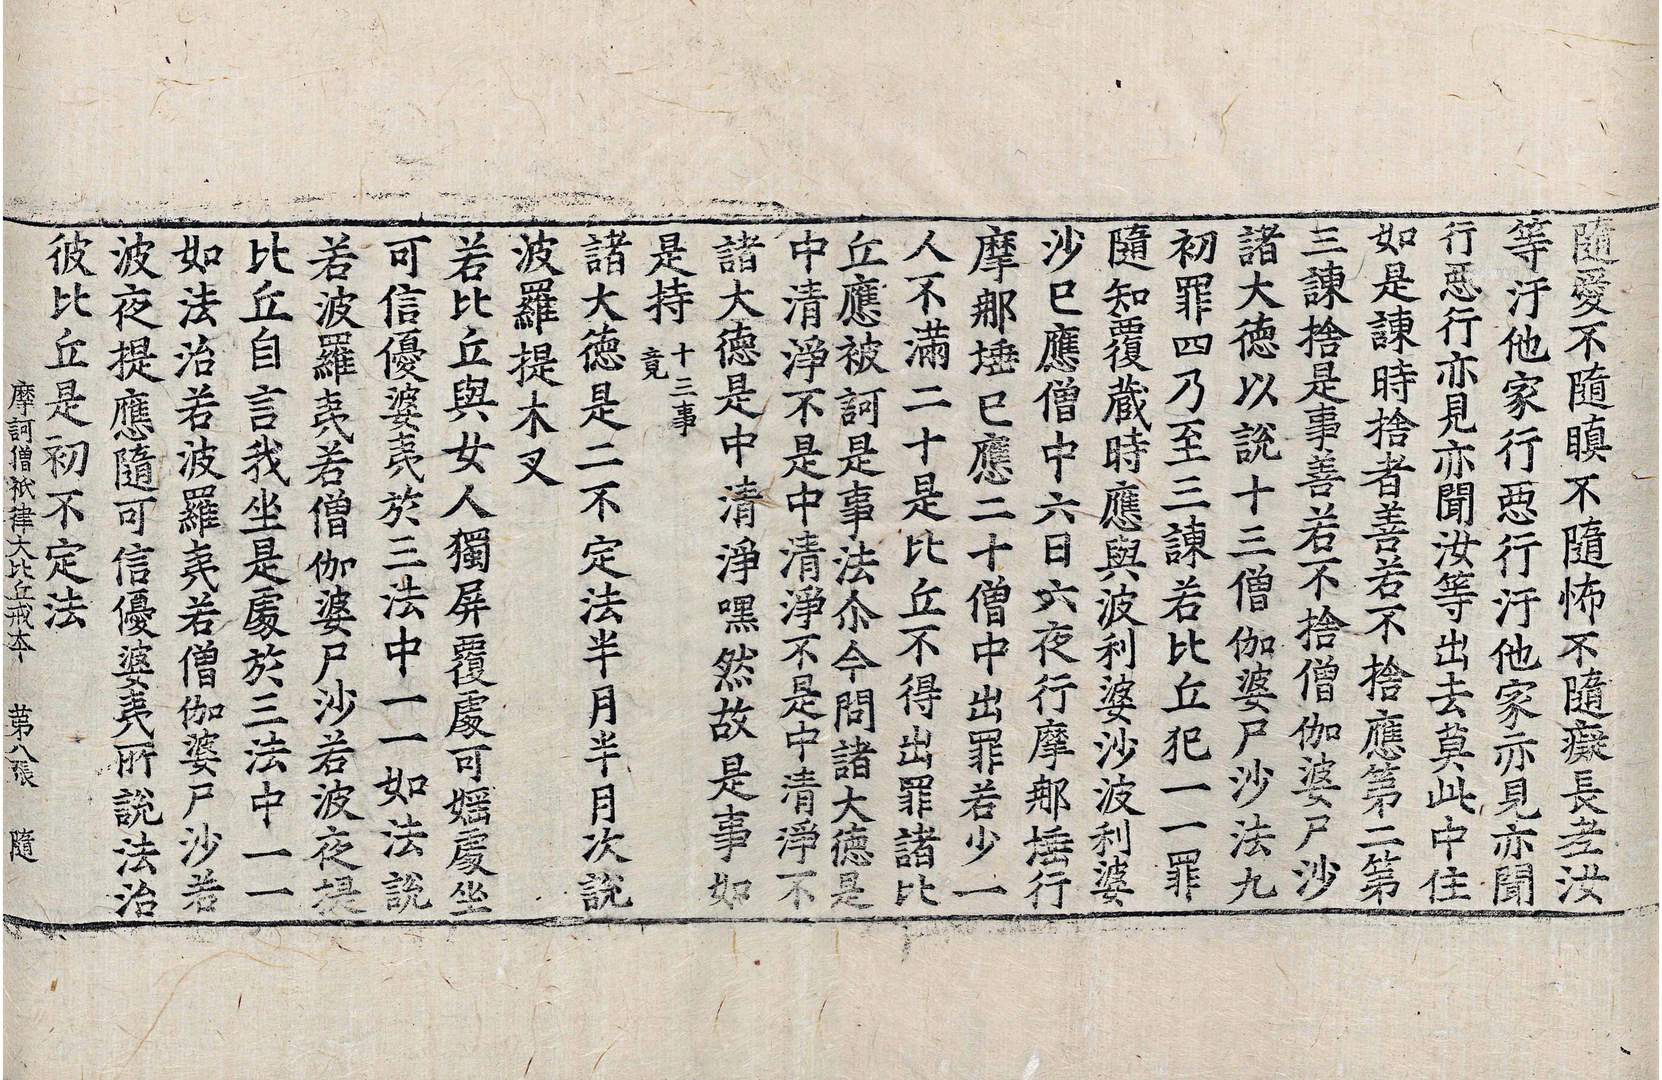 隨愛不隨瞋不隨怖不隨癡長老汝
等汙他家行惡行汙他家亦見亦聞
行惡行亦見亦聞汝等出去莫此中住
如是諫時捨者善若不捨應第二第
三諫捨是事善若不捨僧伽婆尸沙
諸大德以說十三僧伽婆尸沙法九
初罪四乃至三諫若比丘犯一一罪
隨知覆藏時應與波利婆沙波利婆
沙已應僧中六日六夜行摩那埵行
摩那埵已應二十僧中出罪若少一
人不滿二十是比丘不得出罪諸比
丘應被訶是事法尒今問諸大德是
中清淨不是中清淨不是中清淨不
諸大德是中清淨嘿然故是事如
是持 十三事竟
諸大德是二不定法半月半月次說
波羅提木叉
若比丘與女人獨屏覆處可婬處坐
可信優婆夷於三法中一一如法說
若波羅夷若僧伽婆尸沙若波夜提
比丘自言我坐是處於三法中一一
如法治若波羅夷若僧伽婆尸沙若
波夜提應隨可信優婆夷所說法治
彼比丘是初不定法
摩訶僧祇律大比丘戒本 第八張 隨